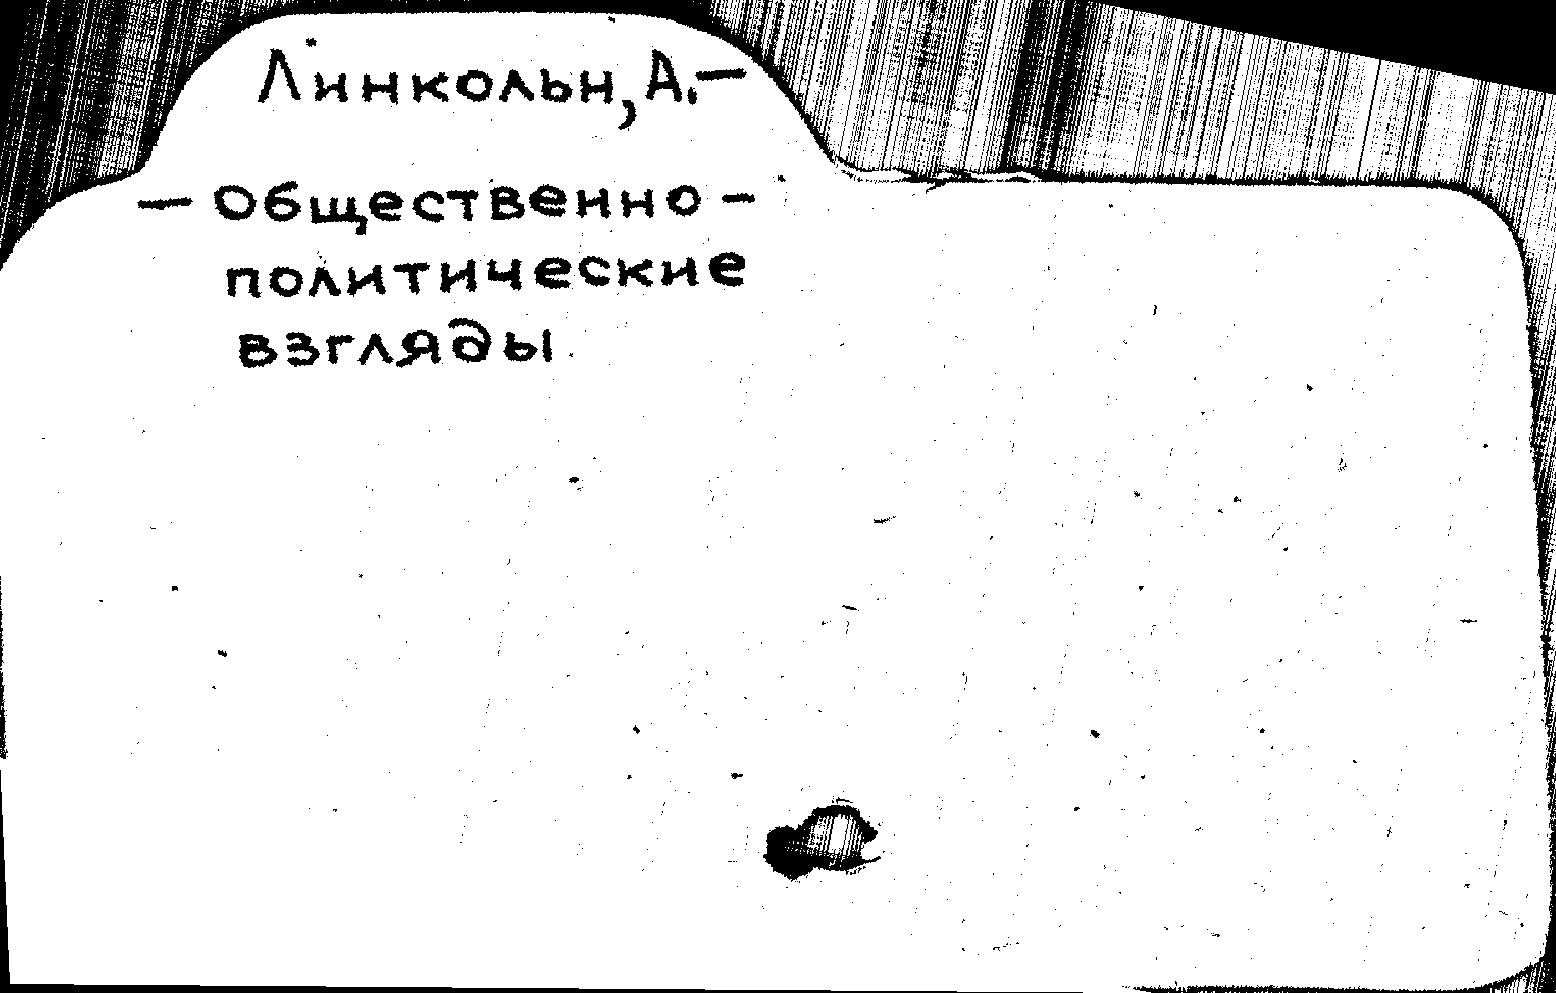 Линкольн, А. —
— Общественно -
политические
взгляды